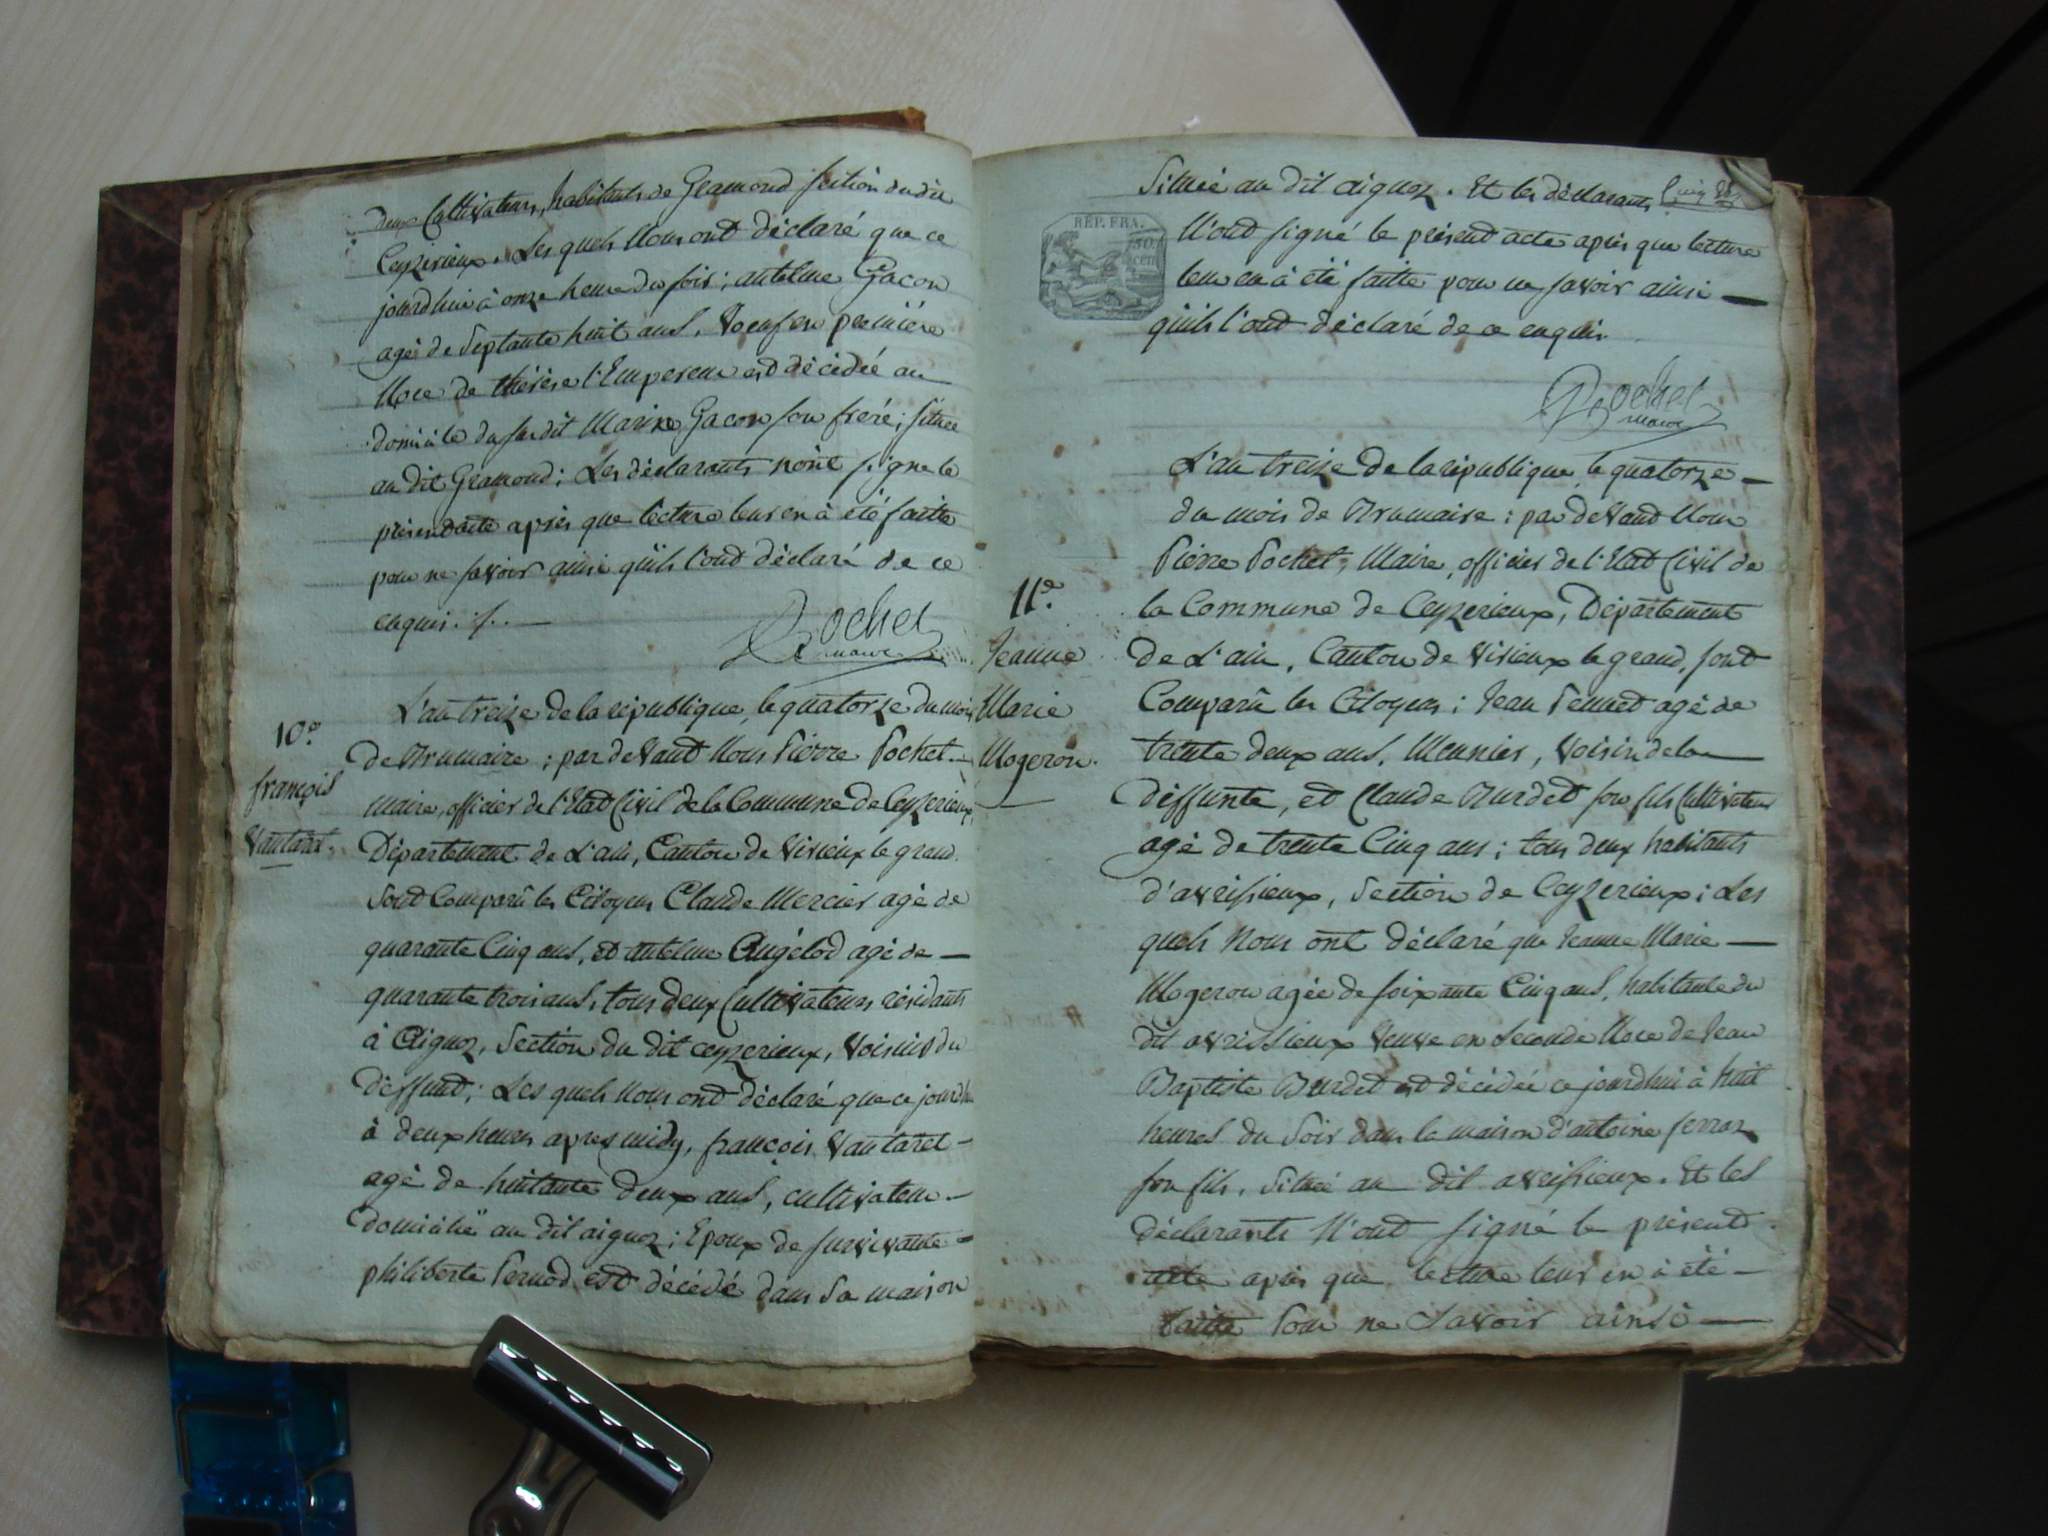 deux Cultivateurs, habitants de Gramond section du dit
Ceyzerieux. Les quels Nous ont déclaré que ce
jourdhui à onze heure du soir; antelme Gacon
agé de Septante huit ans, Voeuf en première
Noce de thérèse l'Empereur est décédée au
domicile du susdit Marin Gacon son freré; située
au dit Gramond; Les déclarants n'ont signé le
présent acte après que lecture leur en à été faitte
pour ne savoir ainsi quils l'ont déclaré de ce
enquis. /. . —
Pochet
maire
10e.
françois
Vantaret.
L'an treize de la république, le quatorze du mois
de Brumaire ; par devant Nous Pierre Pochet —
maire, officier de l'Etat Civil de la Commune de Ceyzerieux,
Département de L'ain, Canton de Virieux le grand.
Sont Comparû les Citoyens Claude Mercier agé de
quarante Cinq ans, et antelme Augélod agé de —
quarante trois ans, tous deux Cultivateurs résidants
à Aignoz, Section du dit ceyzerieux, Voisins du
deffunt; Les quels Nous ont déclaré que ce jourdhui
à deux heures apres midy, françois Vantaret —
agé de huitante deux ans, cultivateur —
Domicilié au dit aignoz; Epoux de survivante —
philiberte Pernod est décédé dans Sa maison
Située au dit aignoz. Et les déclarants
RÉP. FRA.
N'ont signé le présent acte après que lecture
leur en à été faitte pour ne savoir ainsi —
quils l'ont déclaré de ce enquis.
Pochet
maire
11e.
Jeanne
Marie
Mogeron.
L'an treize de la république, le quatorze —
du mois de Brumaire : par devant Nous
Pierre Pochet, Maire, officier de l'Etat Civil de
la Commune de Ceyzerieux, Département
de L'ain, Canton de Virieux le grand, sont
Comparû les Citoyens; Jean Pennet agé de
trente deux ans, Meunier, Voisin de la —
déffunte, et Claude Burdet son fils Cultivateur
agé de trente Cinq ans; tous deux habitants
d'avrissieux, Section de Ceyzerieux; Les
quels Nous ont déclaré que Jeanne Marie —
Mogeron agée de soixante Cinq ans, habitante du
dit avrissieux Veuve en Seconde Noce de Jean
Baptiste Burdet est décédée ce jourdhui à huit
heures du Soir dans la maison d'antoine ferraz
son fils, Située au dit avrissieux. Et les
déclarants N'ont signé le présent
acte après que lecture leur en à été —
faitte Pour ne Savoir ainsi —